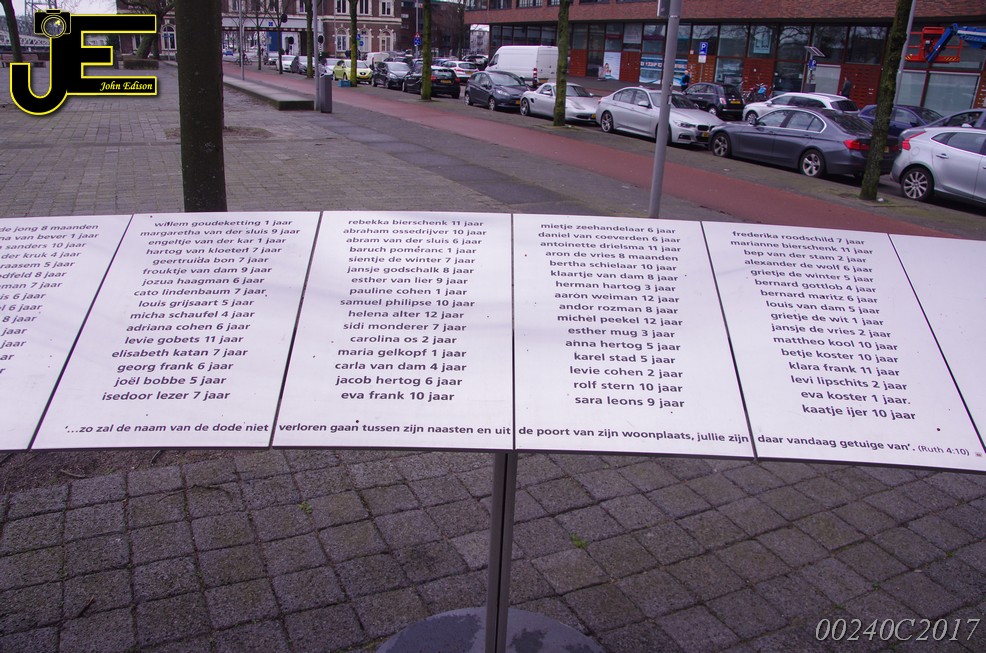 JE
John Edison
de jong 8 maanden
na van bever 1 jaar
sanders 10 jaar
der kruk 4 jaar
raasem 5 jaar
dfeld 8 jaar
eman 7 jaar
is 6 jaar
el 6 jaar
8 jaar
jaar
jaar
aar
willem goudeketting 1 jaar
margaretha van der sluis 9 jaar
engeltje van der kar 1 jaar
hartog van kloeten 7 jaar
geertruida bon 7 jaar
frouktje van dam 9 jaar
jozua haagman 6 jaar
cato lindenbaum 7 jaar
louis grijsaart 5 jaar
micha schaufel 4 jaar
adriana cohen 6 jaar
levie gobets 11 jaar
elisabeth katan 7 jaar
georg frank 6 jaar
joël bobbe 5 jaar
isedoor lezer 7 jaar
rebekka bierschenk 11 jaar
abraham ossedrijver 10 jaar
abram van der sluis 6 jaar
baruch pomeranc 1 jaar
sientje de winter 7 jaar
jansje godschalk 8 jaar
esther van lier 9 jaar
pauline cohen 1 jaar
samuel philipse 10 jaar
helena alter 12 jaar
sidi monderer 7 jaar
carolina os 2 jaar
maria gelkopf 1 jaar
carla van dam 4 jaar
jacob hertog 6 jaar
eva frank 10 jaar
mietje zeehandelaar 6 jaar
daniel van coeverden 6 jaar
antoinette drielsma 11 jaar
aron de vries 8 maanden
bertha schielaar 10 jaar
klaartje van dam 8 jaar
herman hartog 3 jaar
aaron weiman 12 jaar
andor rozman 8 jaar
michel peekel 12 jaar
esther mug 3 jaar
anna hertog 5 jaar
karel stad 5 jaar
levie cohen 2 jaar
rolf stern 10 jaar
sara leons 9 jaar
frederika roodschild 7 jaar
marianne bierschenk 11 jaar
bep van der stam 2 jaar
alexander de wolf 6 jaar
grietje de winter 5 jaar
bernard gottlob 4 jaar
bernard maritz 6 jaar
louis van dam 5 jaar
grietje de wit 1 jaar
jansje de vries 2 jaar
mattheo kool 10 jaar
betje koster 10 jaar
klara frank 11 jaar
levi lipschits 2 jaar
eva koster 1 jaar.
kaatje ijer 10 jaar
'...zo zal de naam van de dode niet verloren gaan tussen zijn naasten en uit de poort van zijn woonplaats, jullie zijn daar vandaag getuige van'. (Ruth 4:10)
00240C2017